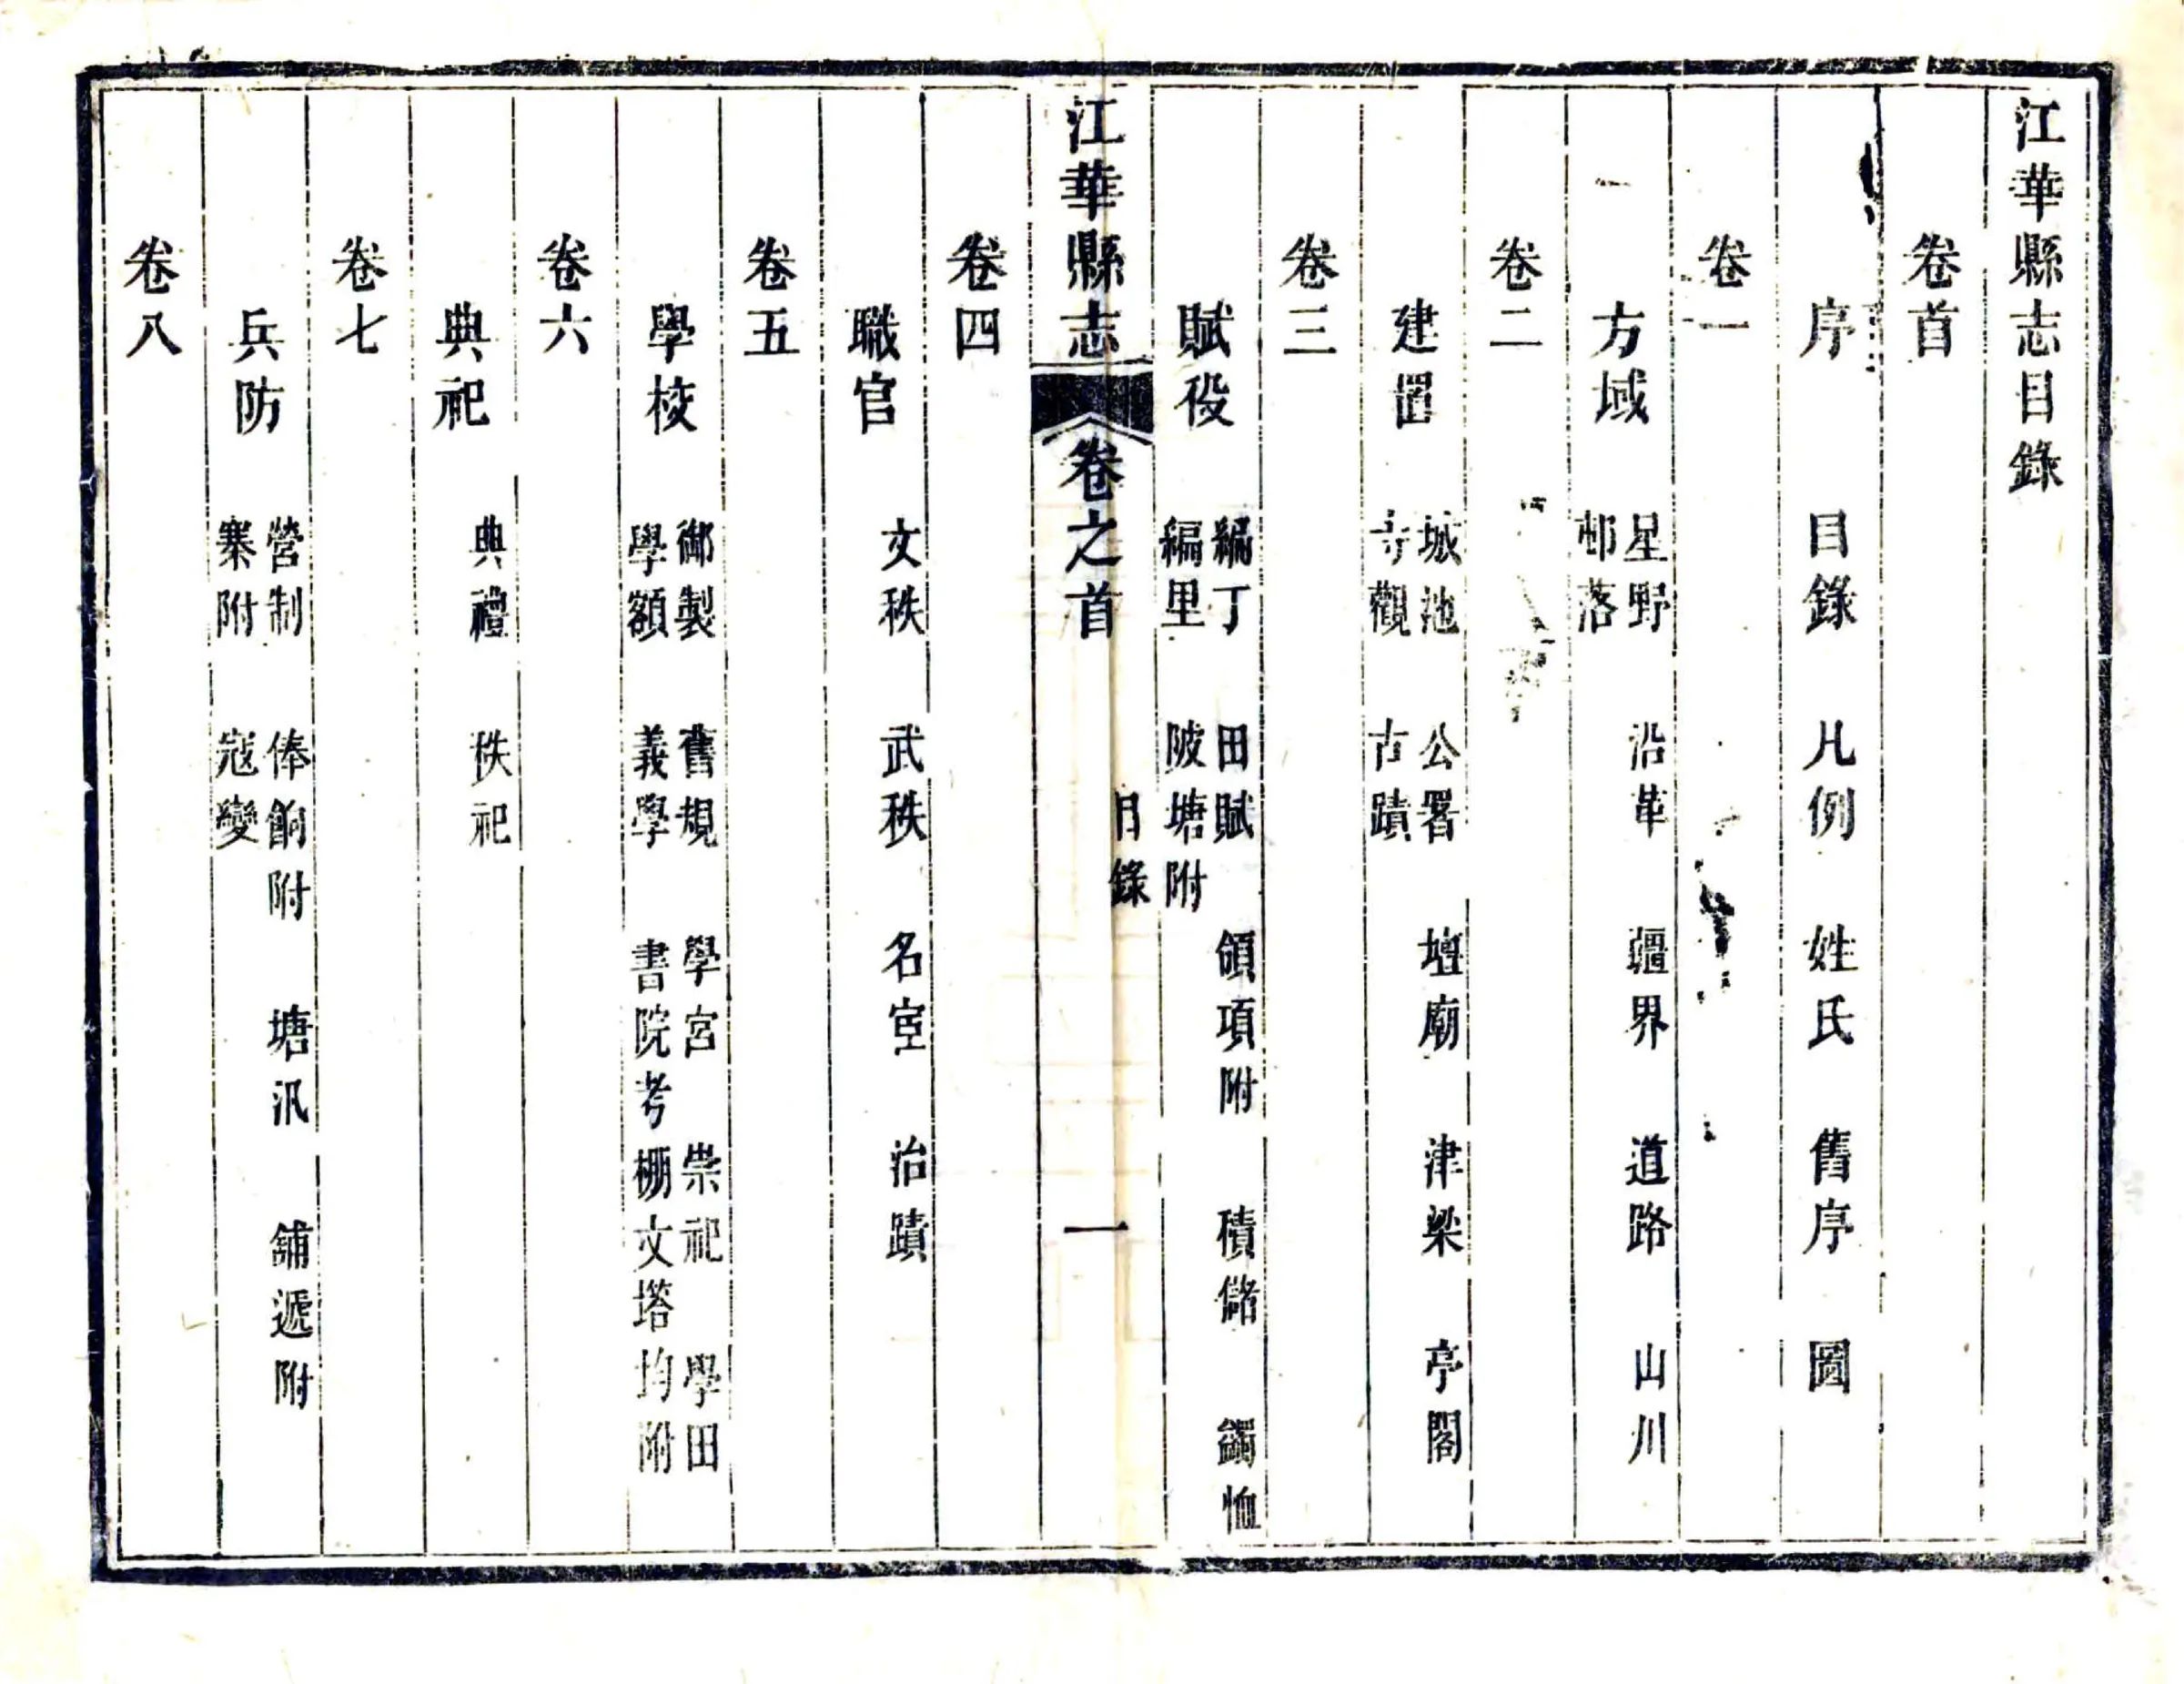 江華縣志目錄
卷首
序 目錄 凡例 姓氏 舊序 圖
卷一
方域 星野 沿革 疆界 道路 山川
邨落
卷二
建置 城池 公署 壇廟 津梁 亭閣
寺觀 古蹟
卷三
賦役 編丁 田賦 領項附 積儲 蠲恤
編里 陂塘附
江華縣志 卷之首 目錄 一
卷四
職官 文秩 武秩 名宦 治蹟
卷五
學校 御製 舊規 學宮 崇祀 學田
學額 義學 書院考棚文塔均附
卷六
典祀 典禮 秩祀
卷七
兵防 營制 俸餉附 塘汛 舖遞附
寨附 寇變
卷八